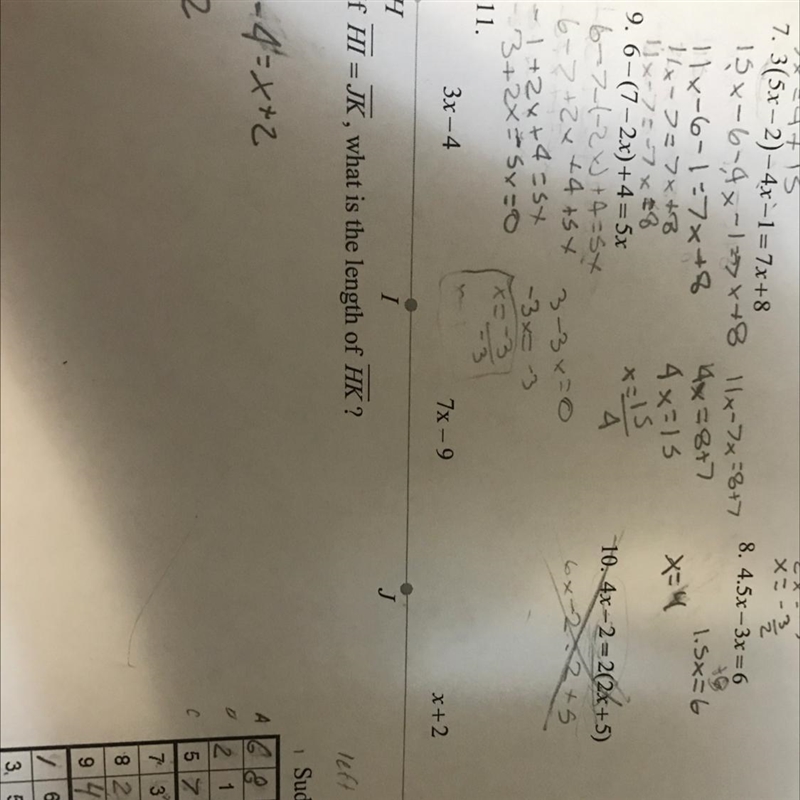 7. 3(5x−2)−4x−1=7x+8
15x−6−4x−1=7x+8
11x−6−1=7x+8
11x−7=7x+8
11x−7=−7x=8
11x−7x=8+7
4x=8+7
4x=15
x=15/4
x=−3/2
8. 4.5x−3x=6
1.5x=6
x=4
9. 6−(7−2x)+4=5x
6−7−(−2x)+4=5x
6−7+2x+4+5x
−1+2x+4=5x
3+2x=−5x=0
3−3x=0
−3x=−3
x=−3/−3
10. 4x−2=2(2x+5)
11.
3x−4
7x−9
x+2
H
I
J
f HI = JK, what is the length of HK?
−4=x+2
2
left
1 Sud
A 6 8
D 2 1
C 5 7
7 3
8 2
9 4
1 6
3